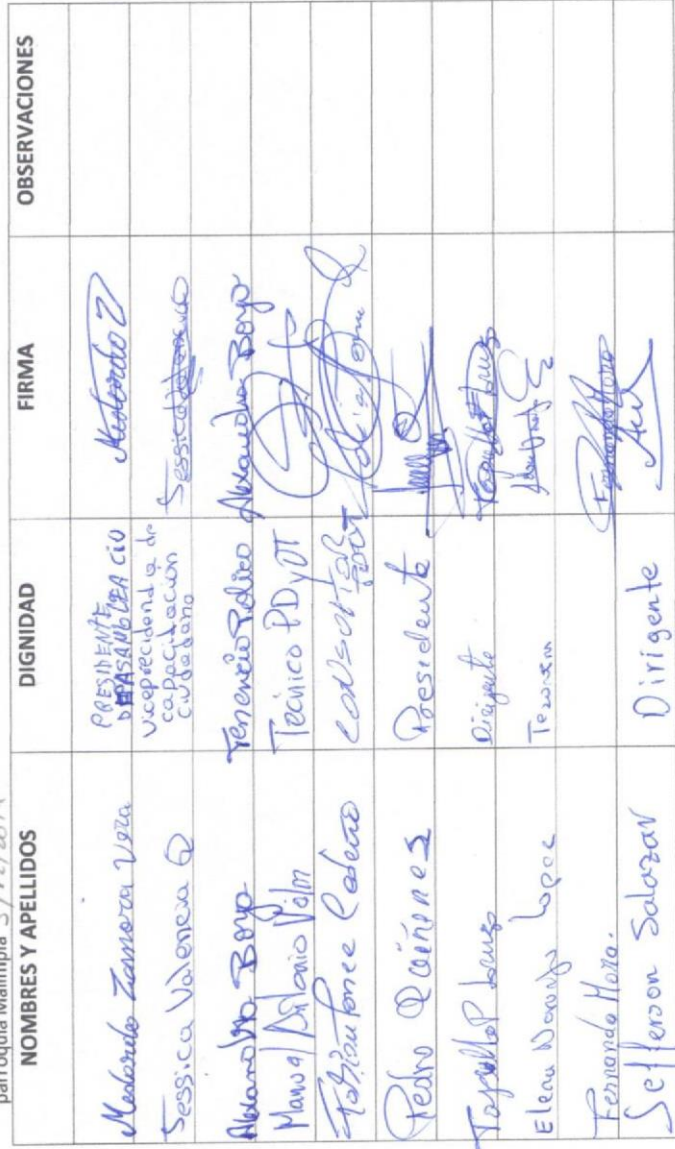 parroquia Malimpia
NOMBRES Y APELLIDOS DIGNIDAD FIRMA OBSERVACIONES
Medardo Zamora Vera PRESIDENTE DE ASAMBLEA CIU Medardo Z
Jessica Valencia Q viceprecidenda de capacitación ciudadano Jessica Valencia
Alexandra Borja Tenencia Politico Alexandra Borja
Manuel Antonio Técnico PDyOT
Fabian Ponce Cedeño CONSULTOR PDOT
Pedro Quiñones Presidente
Dirigente
Elena Naranjo Lopez
Fernando Mora. Fernando Mora
Jefferson Salazar Dirigente